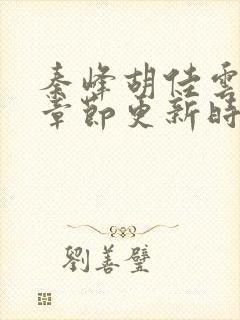 秦峰胡佳雲
章節更新時
劉善璧